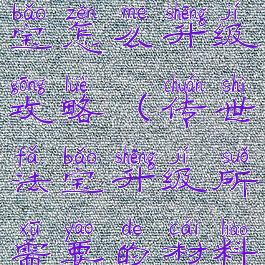 bǎo zěn me shēng jí
宝怎么升级
gōng lüè chuán shì
攻略（传世
fǎ bǎo shēng jí suǒ
法宝升级所
xū yào de cái liào
需要的材料